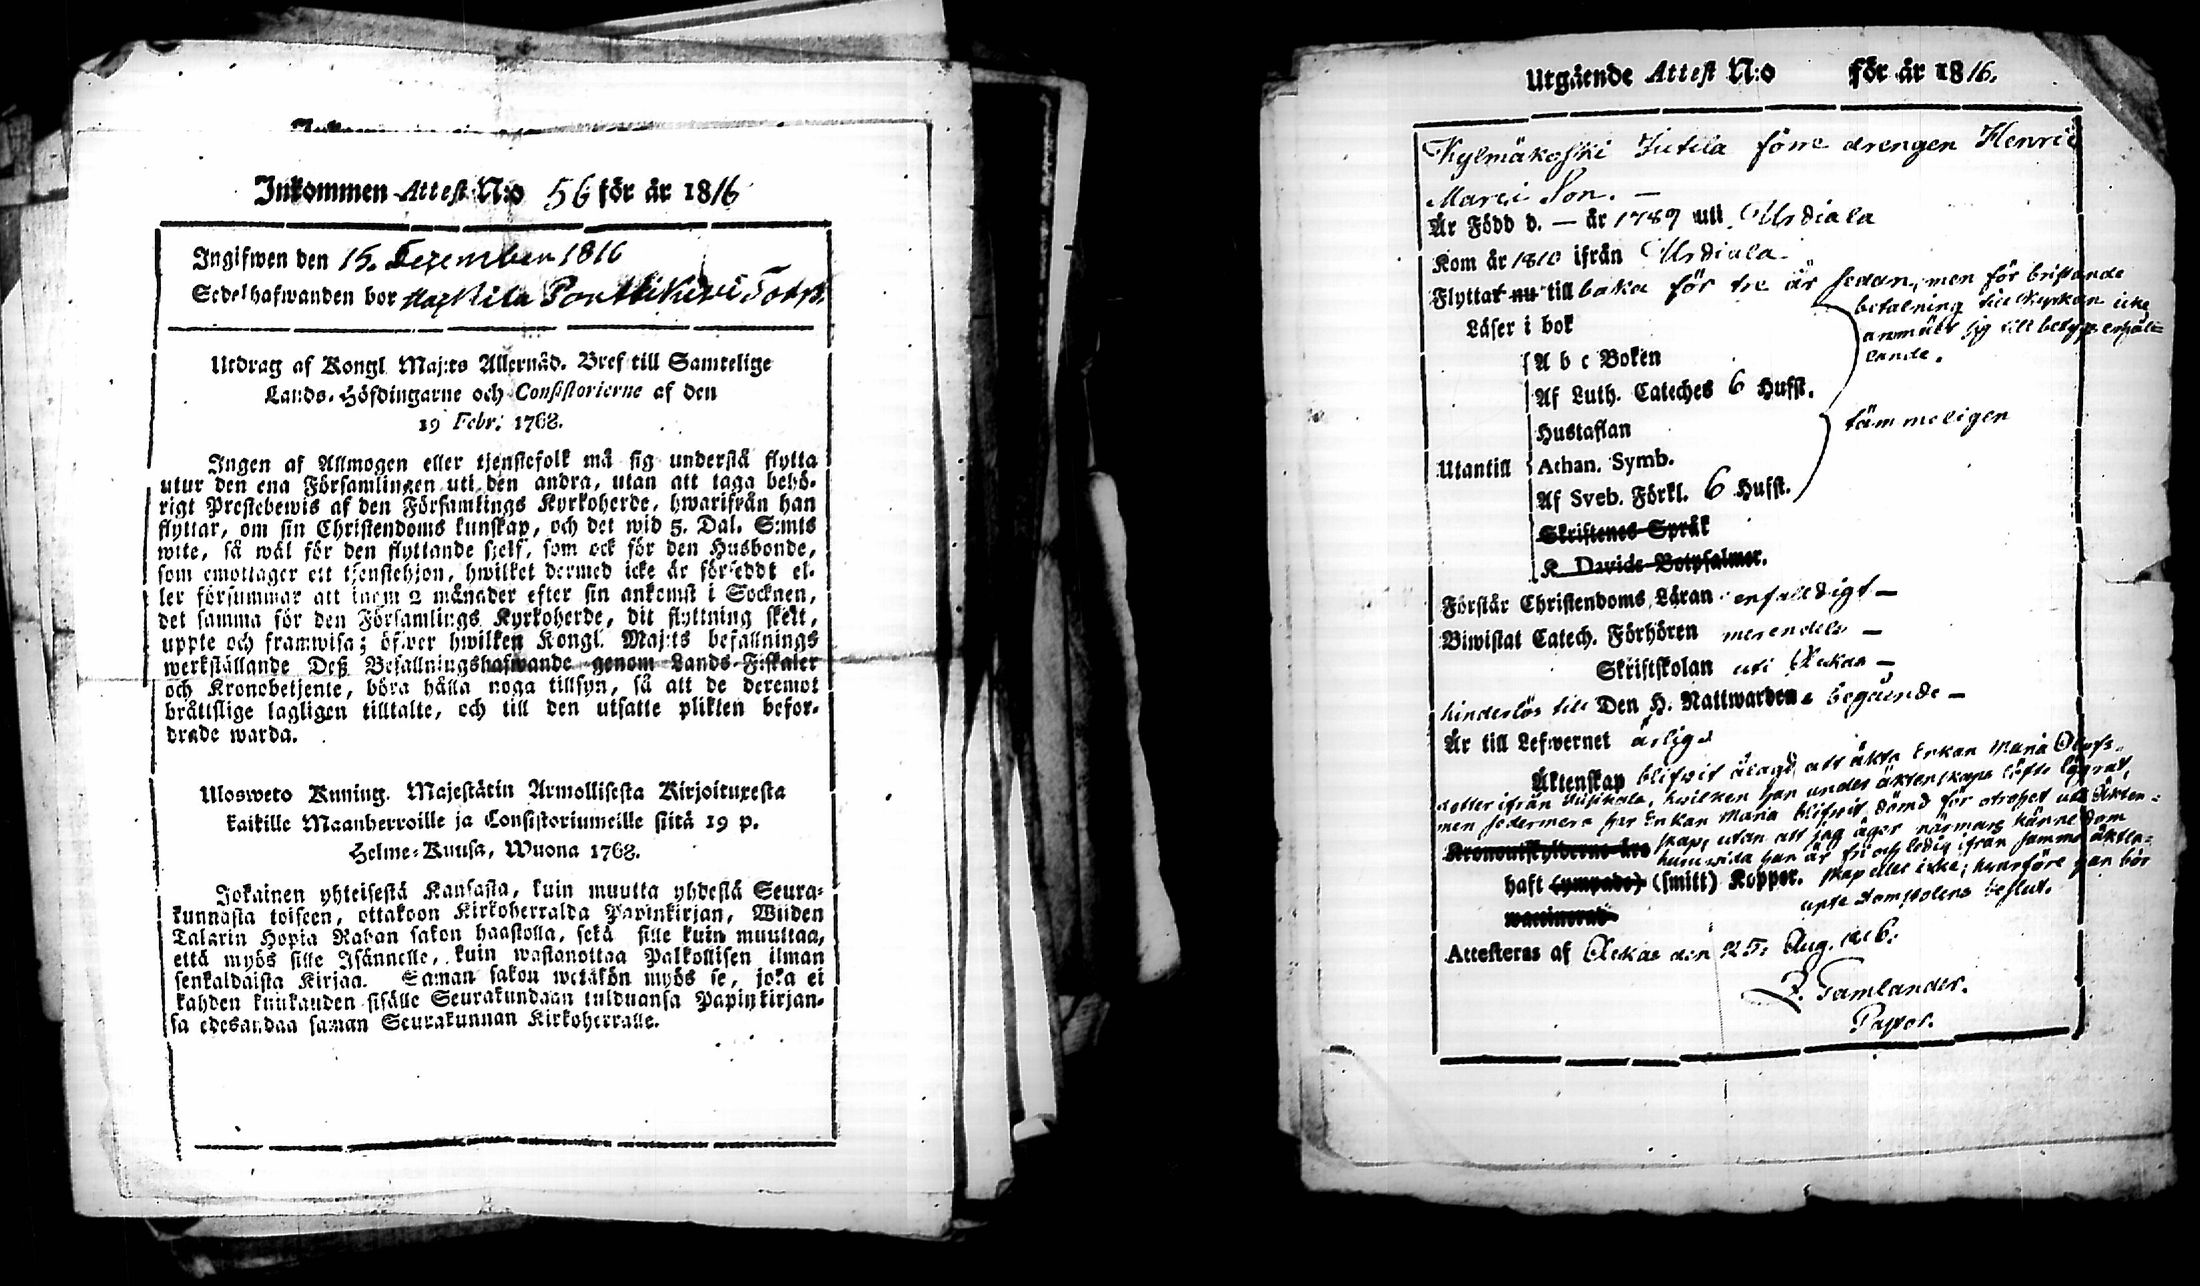 Inkommen Attest N:o 56 för år 1816
Ingifwen den 15. Dezember 1816
Sedelhafwanden bor
Utdrag af Kongl. Maj:ts Allernåd. Bref till Samtelige
Lands-Höfdingarne och Consistorierne af den
19 Febr. 1768.
Ingen af Allmogen eller tjenstefolk må sig understå flytta
utur den ena Församlingen uti den andra, utan att taga behö-
rigt Prestebewis af den Församlings Kyrkoherde, hwarifrån han
flyttar, om sin Christendoms kunskap, och det wid 5. Dal. S:mts
wite, så wäl för den flyttande sjelf, som ock för den Husbonde,
som emottager ett tjenstehjon, hwilket dermed icke är försedt el-
ler försummar att inom 2 månader efter sin ankomst i Socknen,
det samma för den Församlings Kyrkoherde, dit flyttning skett,
uppte och framwisa; öfwer hwilken Kongl. Maj:ts befallnings
werkställande Deß Befallningshafwande genom Lands-Fiskaler
och Kronobetjente, böra hålla noga tillsyn, så att de deremot
bråttslige lagligen tilltalte, och till den utsatte plikten befor-
drade warda.
Ulosweto Kuning. Majestätin Armollisesta Kirjoituxesta
kaikille Maanherroille ja Consistoriumeille siitä 19 p.
Helme-Kuusa, Wuona 1768.
Jokainen yhteisestä Kansasta, kuin muutta yhdestä Seura-
kunnasta toiseen, ottakoon Kirkoherralda Papinkirjan, Wiiden
Talarin Hopia Rahan sakon haastolla, sekä sille kuin muuttaa,
että myös sille Isännelle, kuin wastanottaa Palkollisen ilman
senkaldaista Kirjaa. Saman sakon wetäkön myös se, joka ei
kahden kuukauden sisälle Seurakundaan tulduansa Papinkirjan-
sa edesandaa saman Seurakunnan Kirkoherralle.
Utgående Attest N:o för år 1816.
Kylmäkoski Jutila förre drengen Henric
Marci Son. —
Är Född d. — år 1789 uti Urdiala
Kom år 1810 ifrån Urdiala
Flyttat nu till baka för tre år sedan, men för bristande
betalning till Kyrkan icke
anmält sig till betygs erhål-
lande.
Läser i bok
A b c Boken
Af Luth. Cateches 6 Hufst.
Hustaflan
tämmeligen
Utantill
Athan. Symb.
Af Sveb. Förkl. 6 Hufst.
Skriftenes Språk
K. Davids Botpsalmer.
Förstår Christendoms Läran enfaldigt —
Biwistat Catech. Förhören merendels —
Skriftskolan uti Akkas —
hinderlös till Den H. Nattwardens begående —
Är till Lefwernet ärlig
Äktenskap blifvit ålagd att äkta Enkan Maria Olofs-
dotter ifrån hvilken han under äktenskaps löfte lägrat,
men sedermera har Enkan Maria blifvit dömd för otrohet uti Äkten-
skap, utan att jag äger närmare kännedom
Kronoutskylderne äro
huruvida han är fri och ledig ifrån samma äkten-
haft (ympade) (smitt) Koppor. skap eller icke; hvarföre han bör
upte Domstolens beslut.
waccinerad
Attesteras af Akkas den 25 Aug. 1816.
Tamlander.
Pastor.